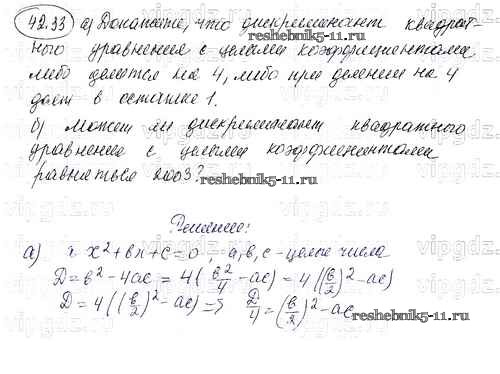 42.33 а) Докажите, что дискриминант квадрат-
ного уравнения с целыми коэффициентами
либо делится на 4, либо при делении на 4
дает в остатке 1.
б) Может ли дискриминант квадратного
уравнения с целыми коэффициентами
равняться 2003?
reshebnik5-11.ru
Решение:
а) x² + bx + c = 0, a, b, c - целые числа
D = b² - 4ac = 4(b²/4 - ac) = 4((b/2)² - ac)
D = 4((b/2)² - ac) => D/4 = (b/2)² - ac
reshebnik5-11.ru